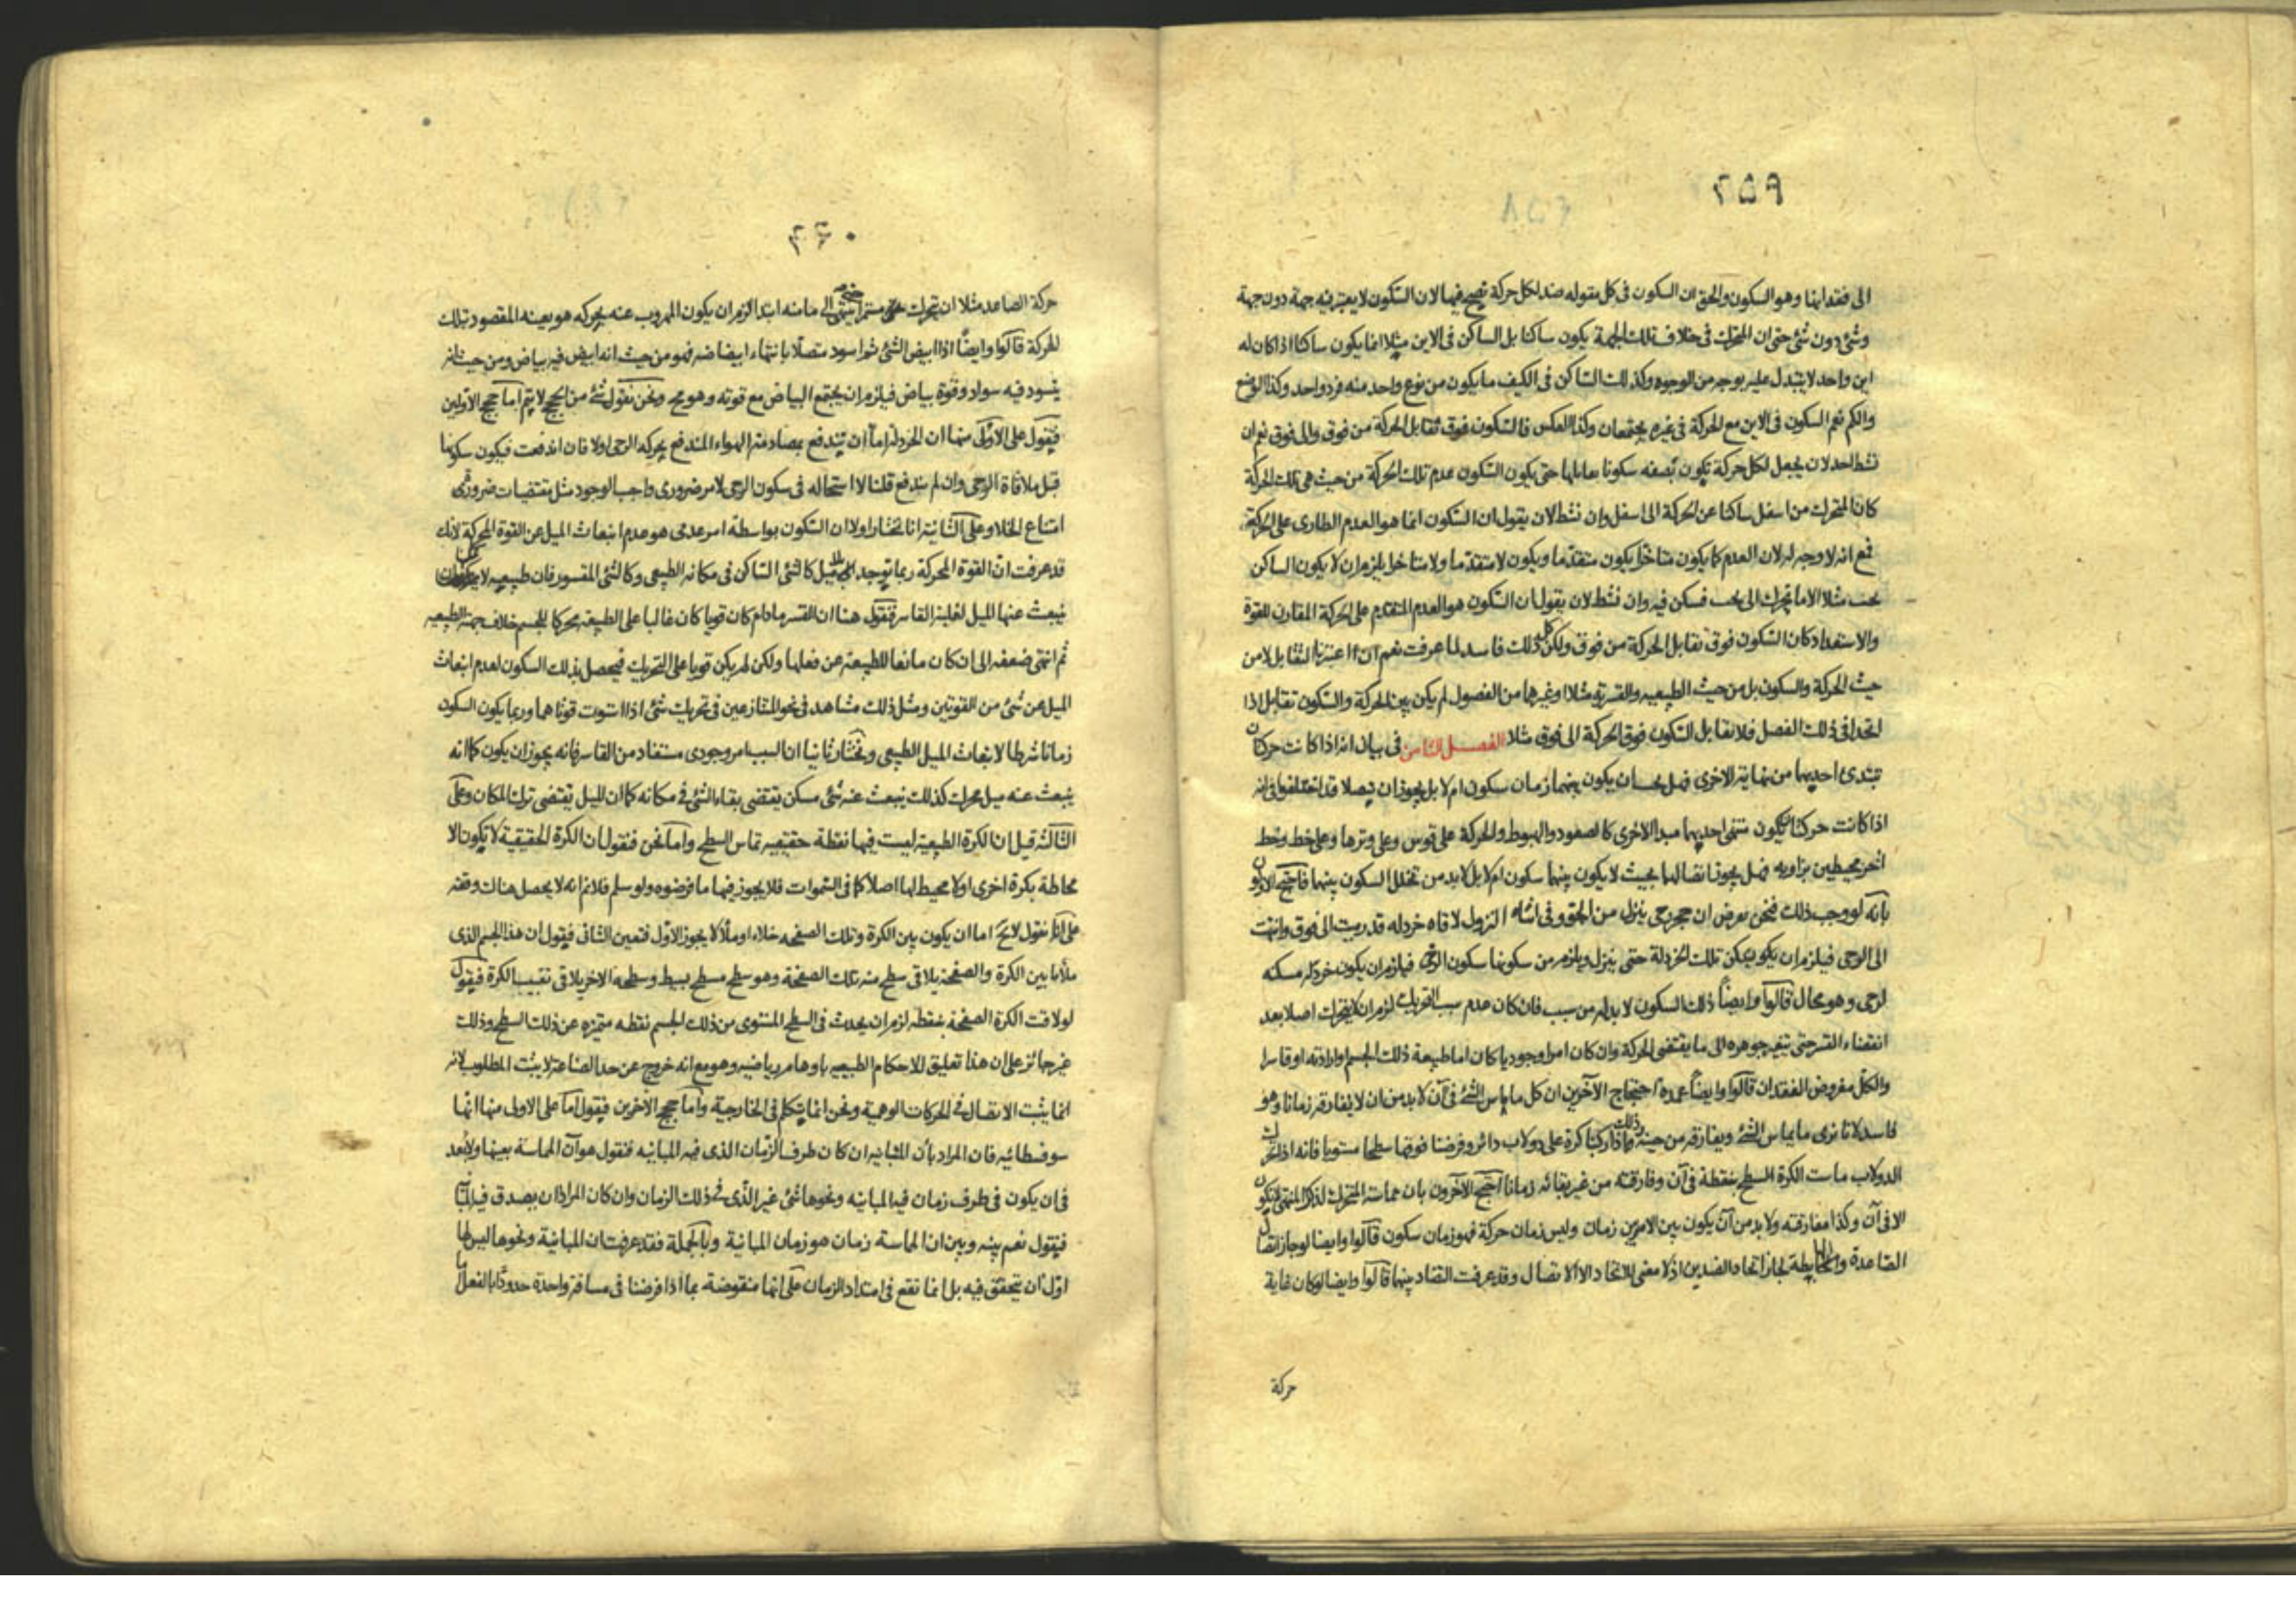 ٢٥٩
الى فقدانها وهو السكون والحق ان السكون فى كل مقوله ضد لكل حركة تصح فيها لان السكون لا يعتبر فيه جهة دون جهة
وشئ دون شئ حتى ان المتحرك فى خلاف تلك الجهة يكون ساكنا بل الساكن فى الاين مثلا انما يكون ساكنا اذا كان له
اين واحد لا يتبدل عليه بوجه من الوجوه وكذلك الساكن فى الكيف ما يكون من نوع واحد منه فرد واحد وكذا الوضع
والكم نعم السكون فى الاين مع الحركة فى غيره يجتمعان وكذا العكس فالسكون فوق تقابل الحركة من فوق والى فوق نعم ان
نشط احد لان يجعل لكل حركة تكون بصفه سكونا يقابلها حتى يكون السكون عدم تلك الحركة من حيث هى تلك الحركة
كان المتحرك من اسفل ساكنا عن الحركة الى اسفل وان نشط لان يقول ان السكون انما هو العدم الطارى على الحركة
فمع انه لا وجه له لان العدم كما يكون متاخرا يكون متقدما ويكون لا متقدما ولا متاخرا يلزم ان لا يكون الساكن
تحت مثلا الا ما تحرك الى تحت فسكن فيه وان نشط لان يقول ان السكون هو العدم المتقدم على الحركة المقارن للقوة
والاستعداد كان السكون فوق تقابل الحركة من فوق ولكن كل ذلك فاسد لما عرفت نعم ان اعتبرنا التقابل لا من
حيث الحركة والسكون بل من حيث الطبيعيه والقسريه مثلا او غيرهما من الفصول لم يكن بين الحركة والسكون تقابل اذا
اتحدا فى ذلك الفصل فلا تقابل السكون فوق الحركة الى فوق مثلا الفصل الثامن فى بيان انه اذا كانت حركتان
تبتدئ احديهما من نهاية الاخرى فهل يجب ان يكون بينهما زمان سكون ام لا بل يجوز ان تيصلا قد اختلفوا فى انه
اذا كانت حركتان يكون منتهى احديهما مبدا الاخرى كالصعود والهبوط والحركة على قوس وعلى وترها وعلى خط وخط
اخر محيطين بزاويه فهل يجوز اتصالهما بحيث لا يكون بينهما سكون ام لا بل لابد من تخلل السكون بينهما فاحتج الاولون
بانه لو وجب ذلك فنحن نعرض ان حجر رحى ينزل من الجو وفى اثناء النزول لاقاه خردله قد رميت الى فوق وانتهت
الى الرحى فيلزم ان يكون يسكن تلك الخردلة حتى ينزل ويلزم من سكونها سكون الرحى فيلزم ان يكون خردله مسكنه
لرحى وهو محال قالوا وايضاً ذلك السكون لا بد له من سبب فان كان عدم سبب التحريك لزم ان لا يتحرك اصلا بعد
انقضاء القسر حتى يتغير جوهره الى ما يقتضى الحركة وان كان امرا وجوديا كان اما طبيعة ذلك الجسم او ارادته او قاسرا
والكل مفروض الفقدان قالوا وايضاً عمدة احتجاج الآخرين ان كل ما يماس الشئ فى آن لا بد من ان لا يفارقه زمانا وهو
فاسد لانا نرى ما يماس الشئ ويفارقه من حينه وذلك فاذا ركبنا كرة على دولاب دائر وفرضنا فوقها سطحا مستويا فانه اذا تحرك
الدولاب ماست الكرة السطح بنقطة فى آن وفارقته من غير بقائه زمانا احتج الآخرون بان مماسته المتحرك لذلك المنتهى لا يكون
الا فى آن وكذا مفارقته ولا بد من آن يكون بين الامرين زمان وليس زمان حركة فهو زمان سكون قالوا وايضا لو جاز اتصال
الصاعدة والهابطة لجاز اتحاد الضدين اذ لا معنى للاتحاد الا الاتصال وقد عرفت التضاد بينهما قالوا وايضا لو كان غاية
حركة
٢٦٠
حركة الصاعد مثلا ان يتحرك مستمرا حتى ينتهى الى ما منه ابتدا لزم ان يكون المهروب عنه بحركه هو بعينه المقصود بتلك
الحركة قالوا وايضاً اذا ابيض الشئ ثم اسود متصلا بانتهاء ابيضاضه فهو من حيث انه ابيض فيه بياض ومن حيث انه
يتسود فيه سواد وقوة بياض فيلزم ان يجتمع البياض مع قوته وهو مح ونحن نقول شئ من الحجج لا يتم اما حجج الاولين
فيقول على الاولى منها ان الخردلة اما ان يندفع بمصادمة الهواء المندفع بحركه الرحى اولا فان اندفعت فيكون سكونها
قبل ملاقاة الرحى وان لم يندفع قلنا لا استحاله فى سكون الرحى لامر ضرورى واجب الوجود مثل مقتضيات ضرورتى
امتناع الخلاء وعلى الثانية انا نختار اولا ان السكون بواسطة امر عدمى هو عدم انبعاث الميل عن القوة المحركة لانك
قد عرفت ان القوة المحركة ربما توجد بلا ميل كالشئ الساكن فى مكانه الطبيعى وكالشئ المقسور فان طبيعيه لا يمكن ان
ينبعث عنها الميل لغلبة القاسر فنقول هنا ان القسر مادام كان قويا كان غالبا على الطبيعه محركا للجسم خلاف جهة الطبيعيه
ثم انتهى ضعفه الى ان كان مانعا للطبيعة عن فعلها ولكن لم يكن قويا على التحريك فيحصل بذلك السكون لعدم انبعاث
الميل عن شئ من القوتين ومثل ذلك مشاهد فى نحو المتنازعين فى تحريك شئ اذا استوت قوتاهما وربما يكون السكون
زمانا شرطا لانبعاث الميل الطبيعى ونختار ثانيا ان السبب امر وجودى مستفاد من القاسر فانه يجوز ان يكون كما انه
ينبعث عنه ميل محرك كذلك ينبعث عنه شئ مسكن يقتضى بقاء الشئ فى مكانه كما ان الميل يقتضى ترك المكان وعلى
الثالثة قيل ان الكرة الطبيعية ليست فيها نقطة حقيقيه تماس السطح واما نحن فنقول ان الكرة الحقيقية لا تكون الا
محاطة بكرة اخرى او لا محيط لها اصلا كما فى السموات فلا يجوز فيها ما فرضوه ولو سلم فلا نم انه لا يحصل هناك وقفه
على انا نقول لا يخ اما ان يكون بين الكرة وتلك الصفحه خلاء او ملأ لا يجوز الاول فتعين الثانى فيقول ان هذا الجسم الذى
ملأ ما بين الكرة والصفحة يلاقى سطح منه تلك الصفحة وهو سطح مسطح بسيط وسطحه الاخر يلاقى تقبيب الكرة فيقول
لو لاقت الكرة الصفحة بنقطة لزم ان يحدث فى السطح المستوى من ذلك الجسم نقطه متميزه عن ذلك السطح وذلك
غير جائز على ان هذا تعليق للاحكام الطبيعيه باوهام رياضيه وهو مع انه خروج عن حد الصناعة لا يثبت المطلوب لانه
انما يثبت الاتصال فى الحركات الوهمية ونحن انما يتكلم فى الخارجية واما حجج الاخرين فيقول اما على الاول منها انها
سوفسطائيه فان المراد بآن المباينه ان كان طرف الزمان الذى فيه المباينه فنقول هو آن المماسة بعينها ولا بعد
فى ان يكون فى طرف زمان فيه المباينه ونحوها شئ غير الذى فى ذلك الزمان وان كان المراد آن يصدق فيه المباينة
فيقول نعم بينه وبين ان المماسة زمان هو زمان المباينة وبالجملة فقد عرفت ان المباينة ونحوها ليس لها
اول آن يتحقق فيه بل انما تقع فى امتداد الزمان على انها منقوضة بما اذا فرضنا فى مسافة واحدة حدودا بالفعل